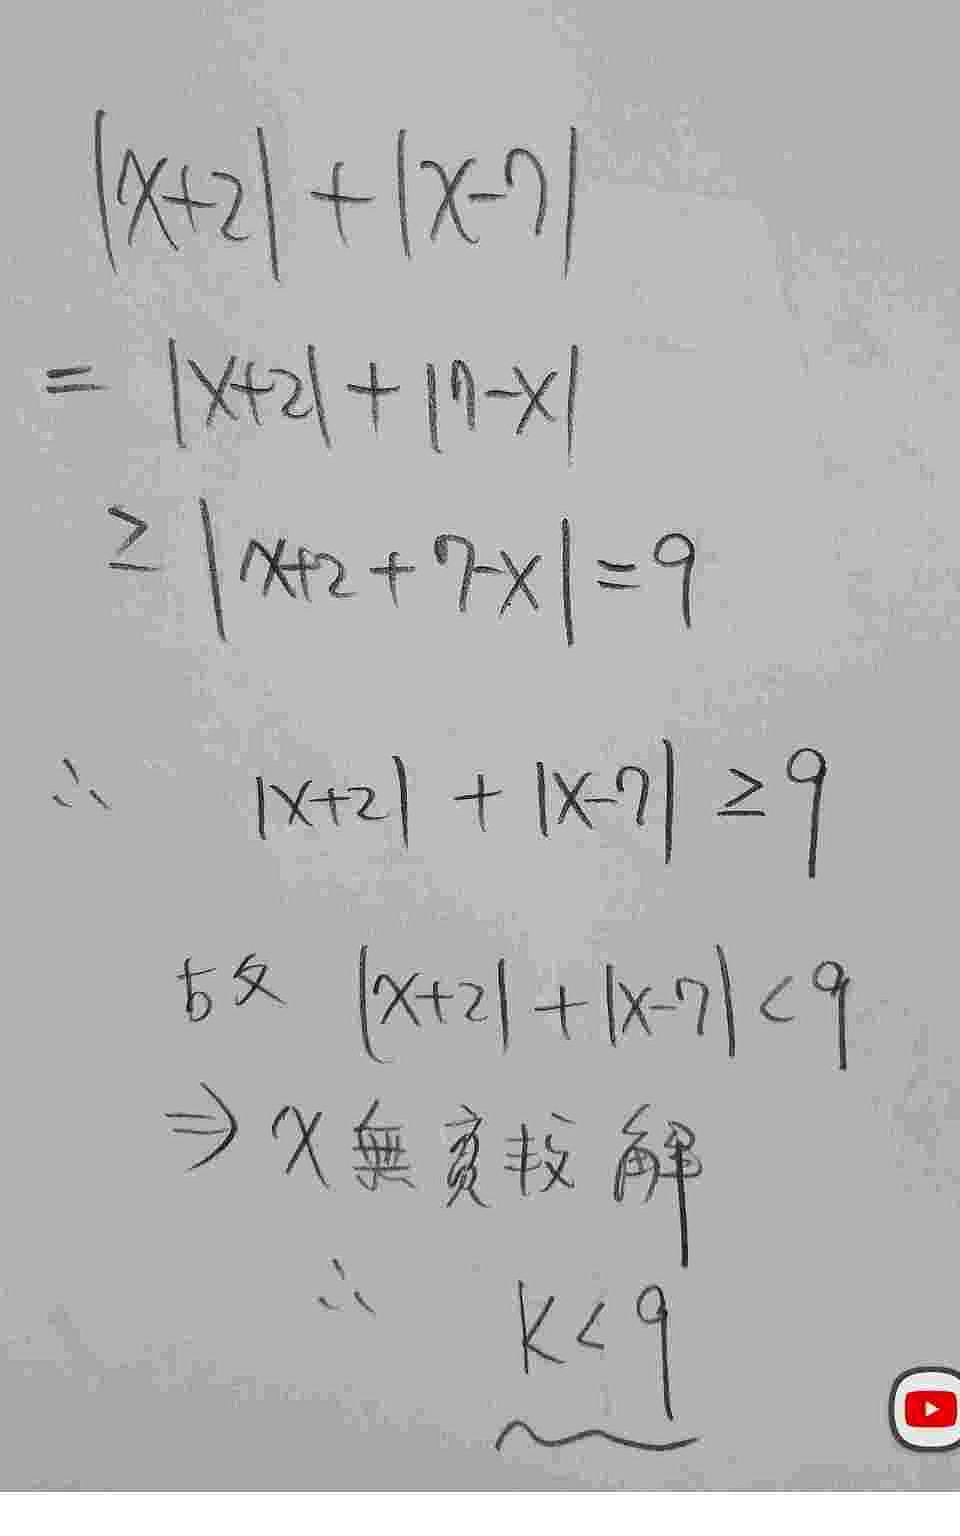 |x+2|+|x-7|
= |x+2|+|7-x|
≥ |x+2+7-x|=9
∴ |x+2| + |x-7| ≥9
故 |x+2|+|x-7|<9
⇒ x 無實数解
∴ k<9